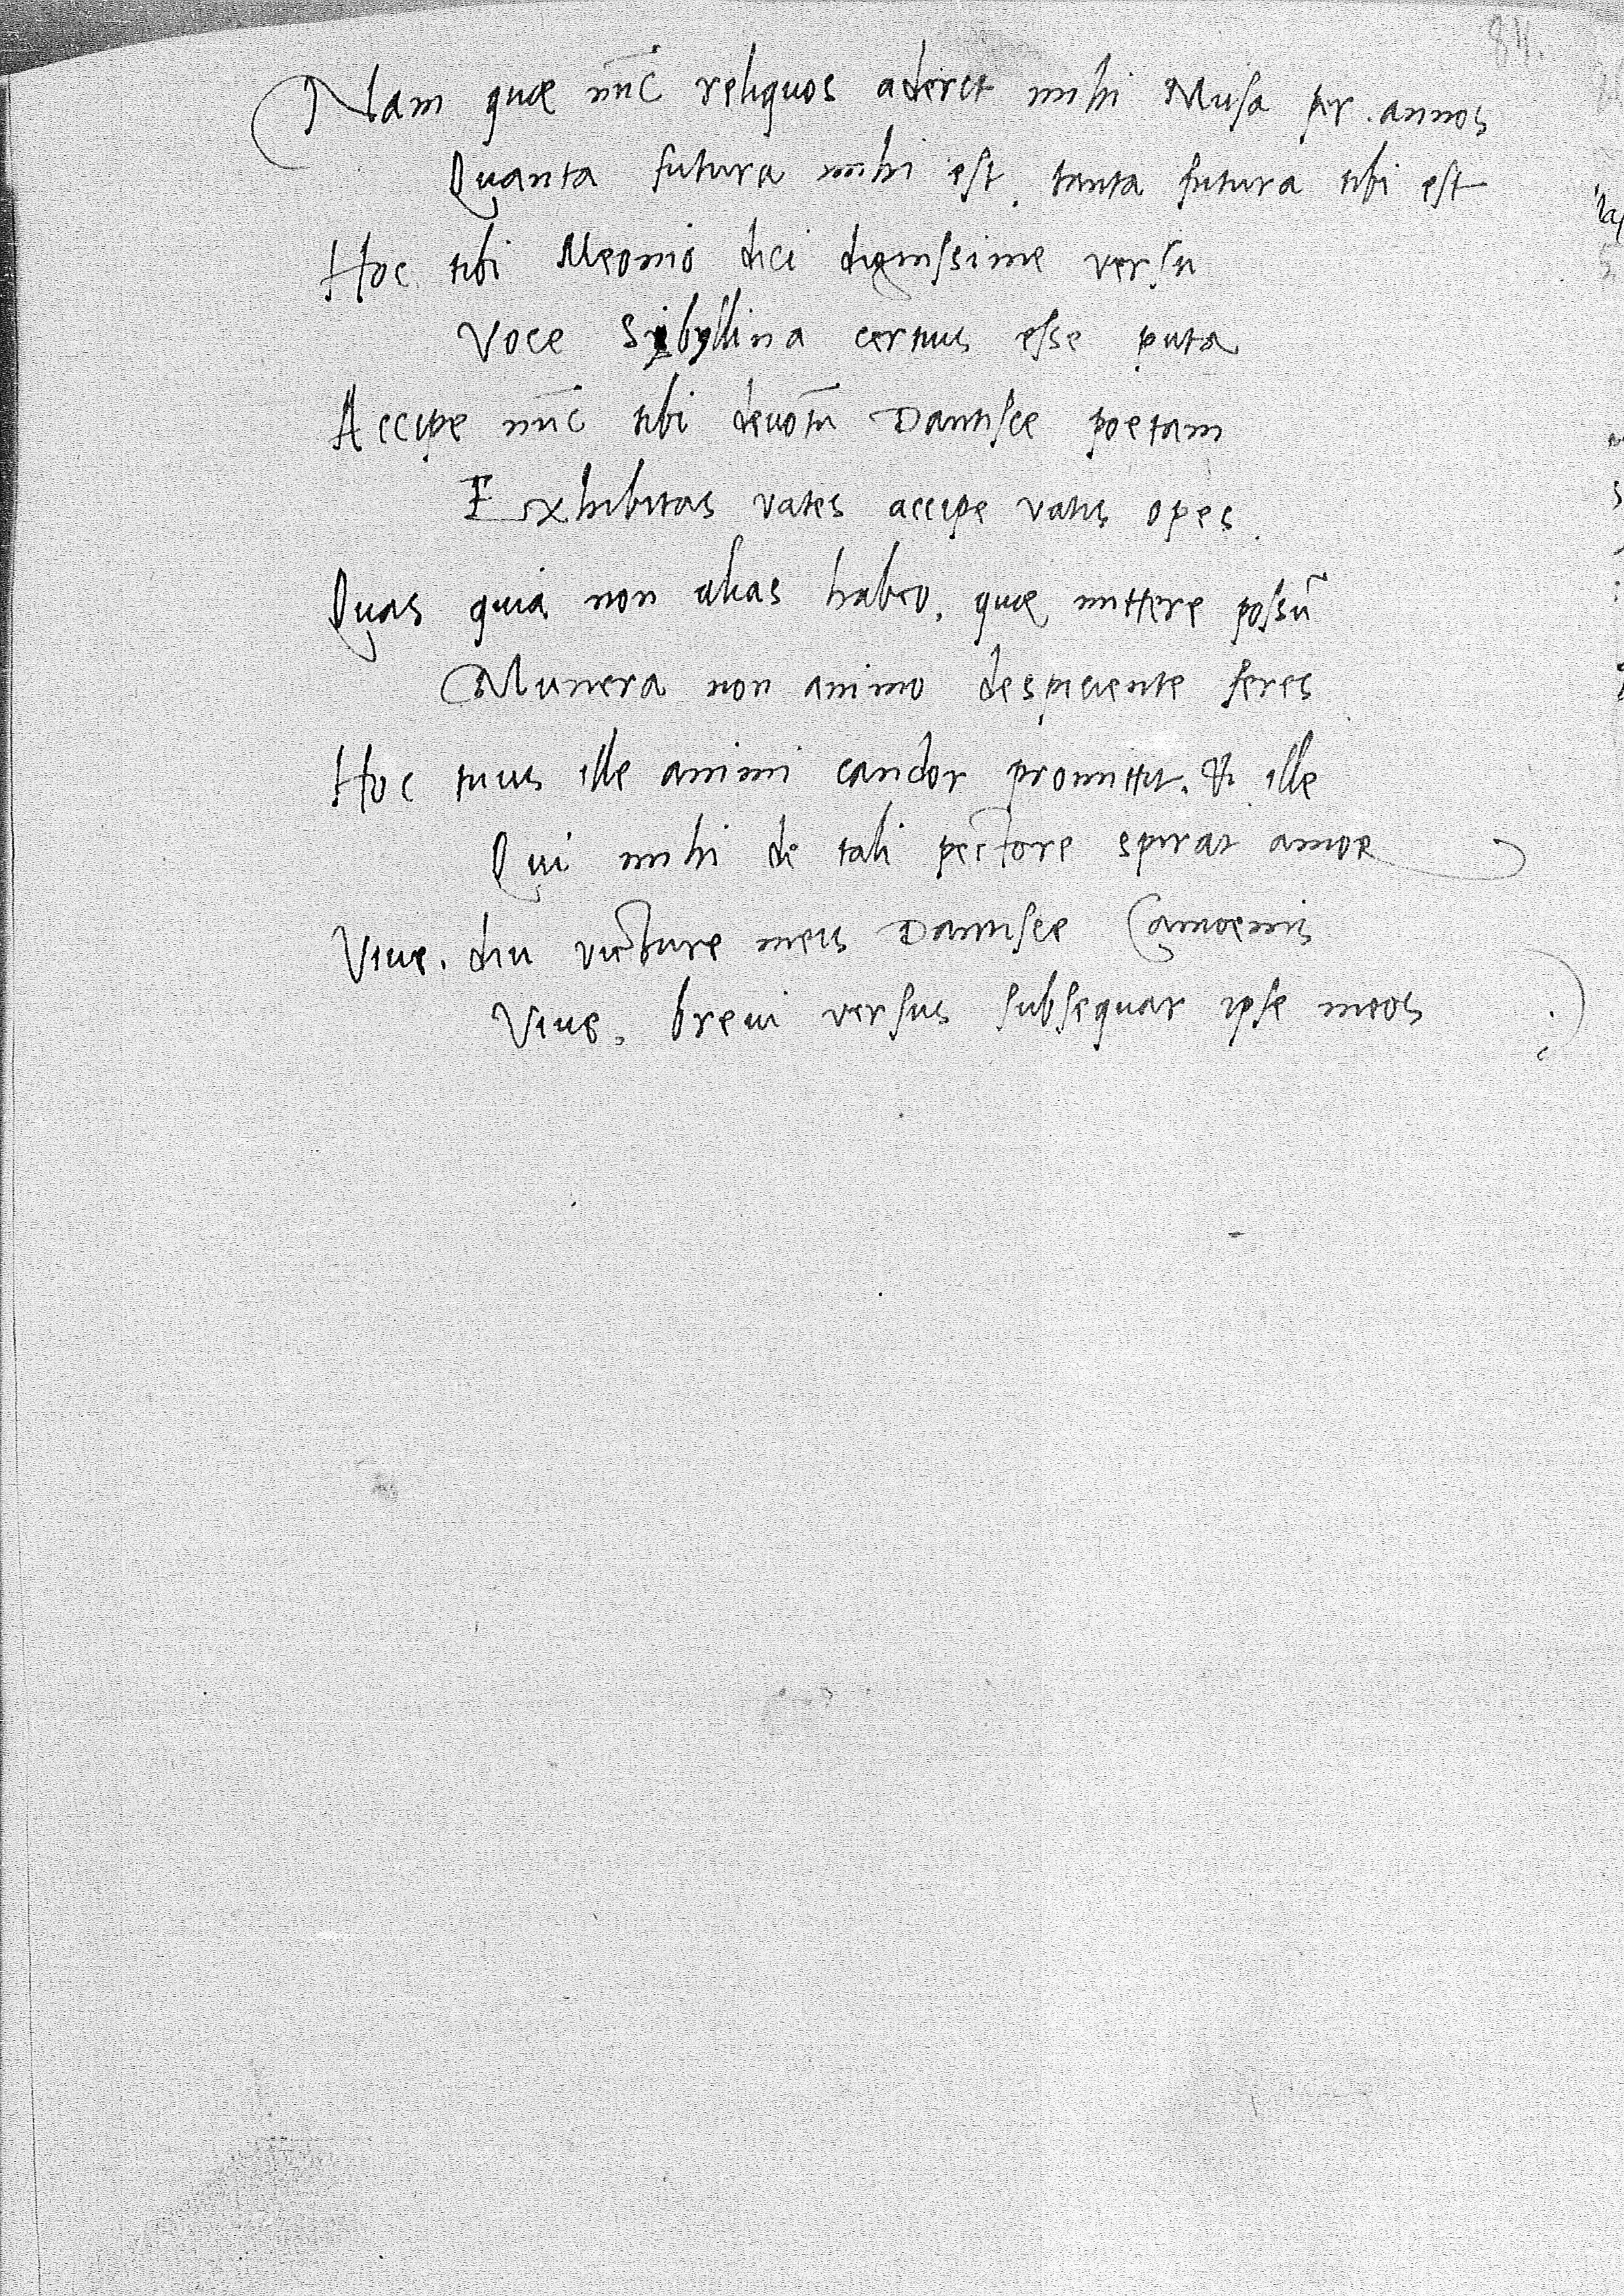 84.
Nam quæ nūc reliquos aderit mihi Musa per annos
Quanta futura mihi est, tanta futura tibi est
Hoc tibi Meonio dici dignissime versu
Voce Sybyllina certius esse puta
Accipe nūc tibi deuotū Dantisce poetam
Exhibitas vates accipe vatis opes.
Quas quia non alias habeo, quæ mittere possū
Munera non animo despiciente feres
Hoc tuus ille animi candor promittit, & ille
Qui mihi de tali pectore spirat amor
Viue, diu victure meis Dantisce Camoenis
Viue, breui versus subsequar ipse meos